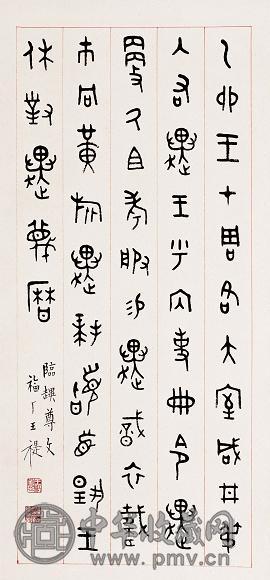 乙卯王才周各大室咸井叔
入右趩王乎内史冊令趩
更厥且考服易趩戠衣載
市冋黃旂趩拜稽首揚王
休對趩蔑曆
臨趩尊文
福厂王禔
中华收藏网
www.pmv.cn